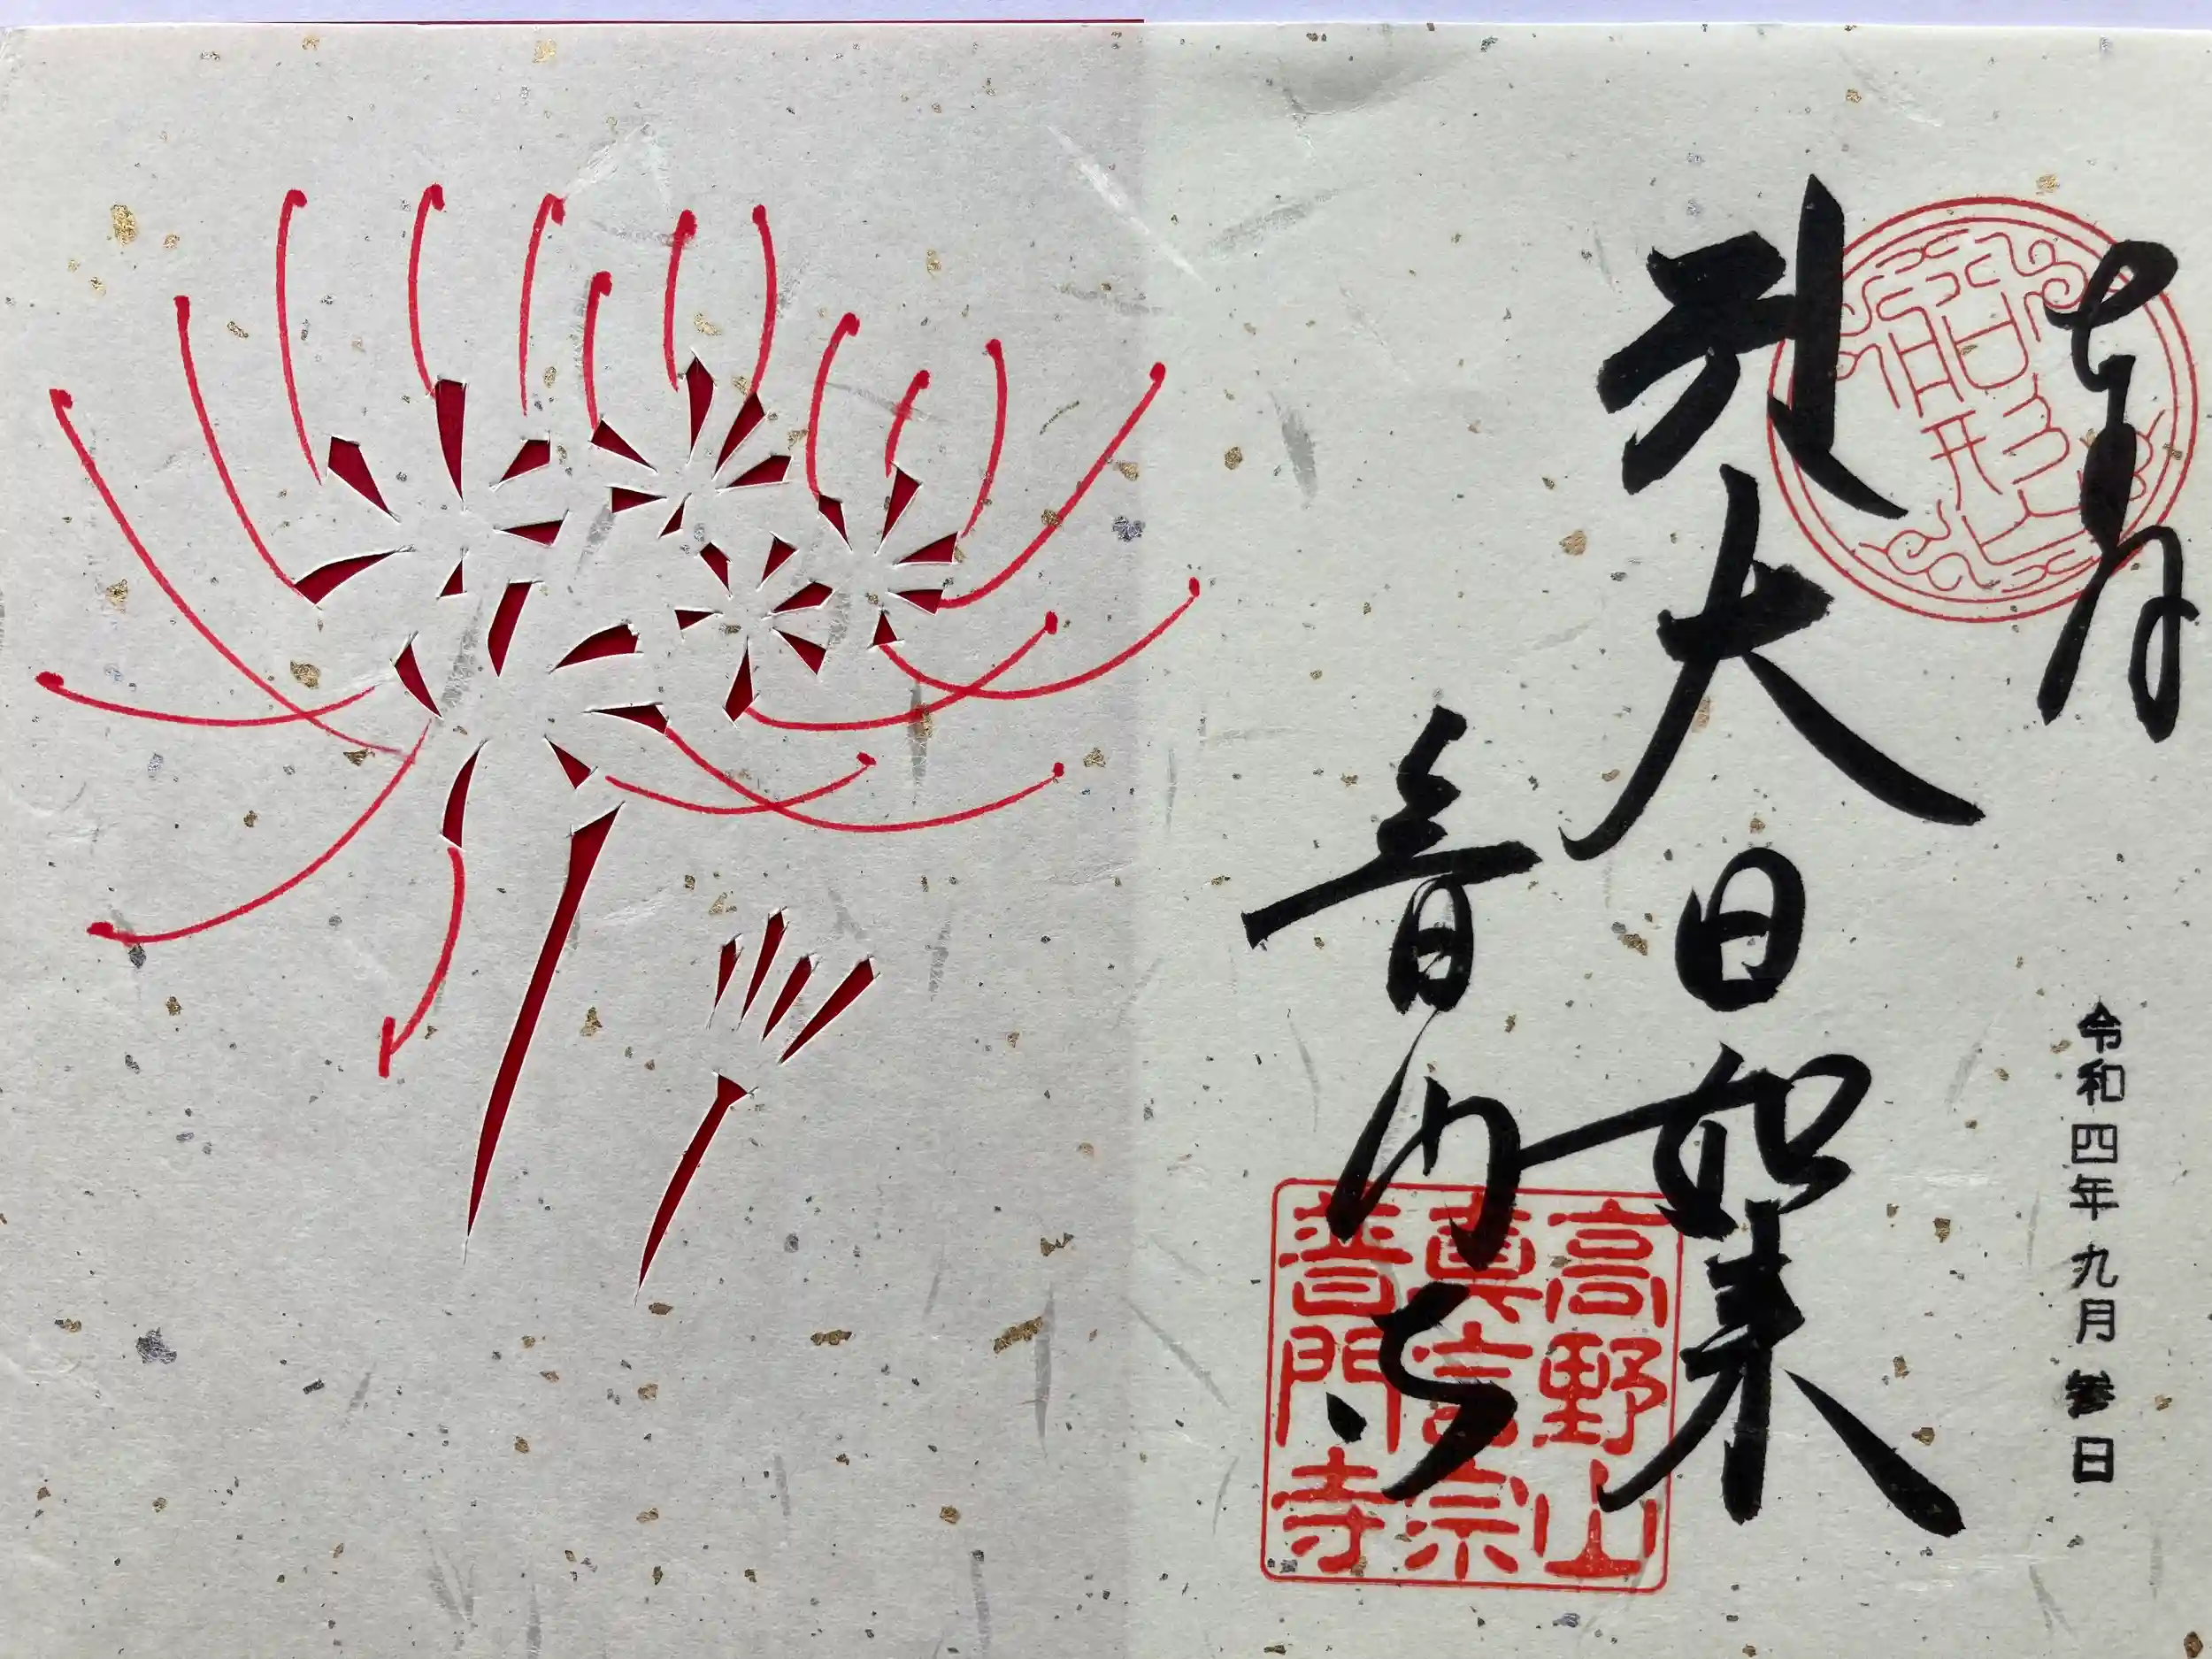 奉拝
大日如来
普門寺
令和四年九月参日
高野山
真言宗
普門寺